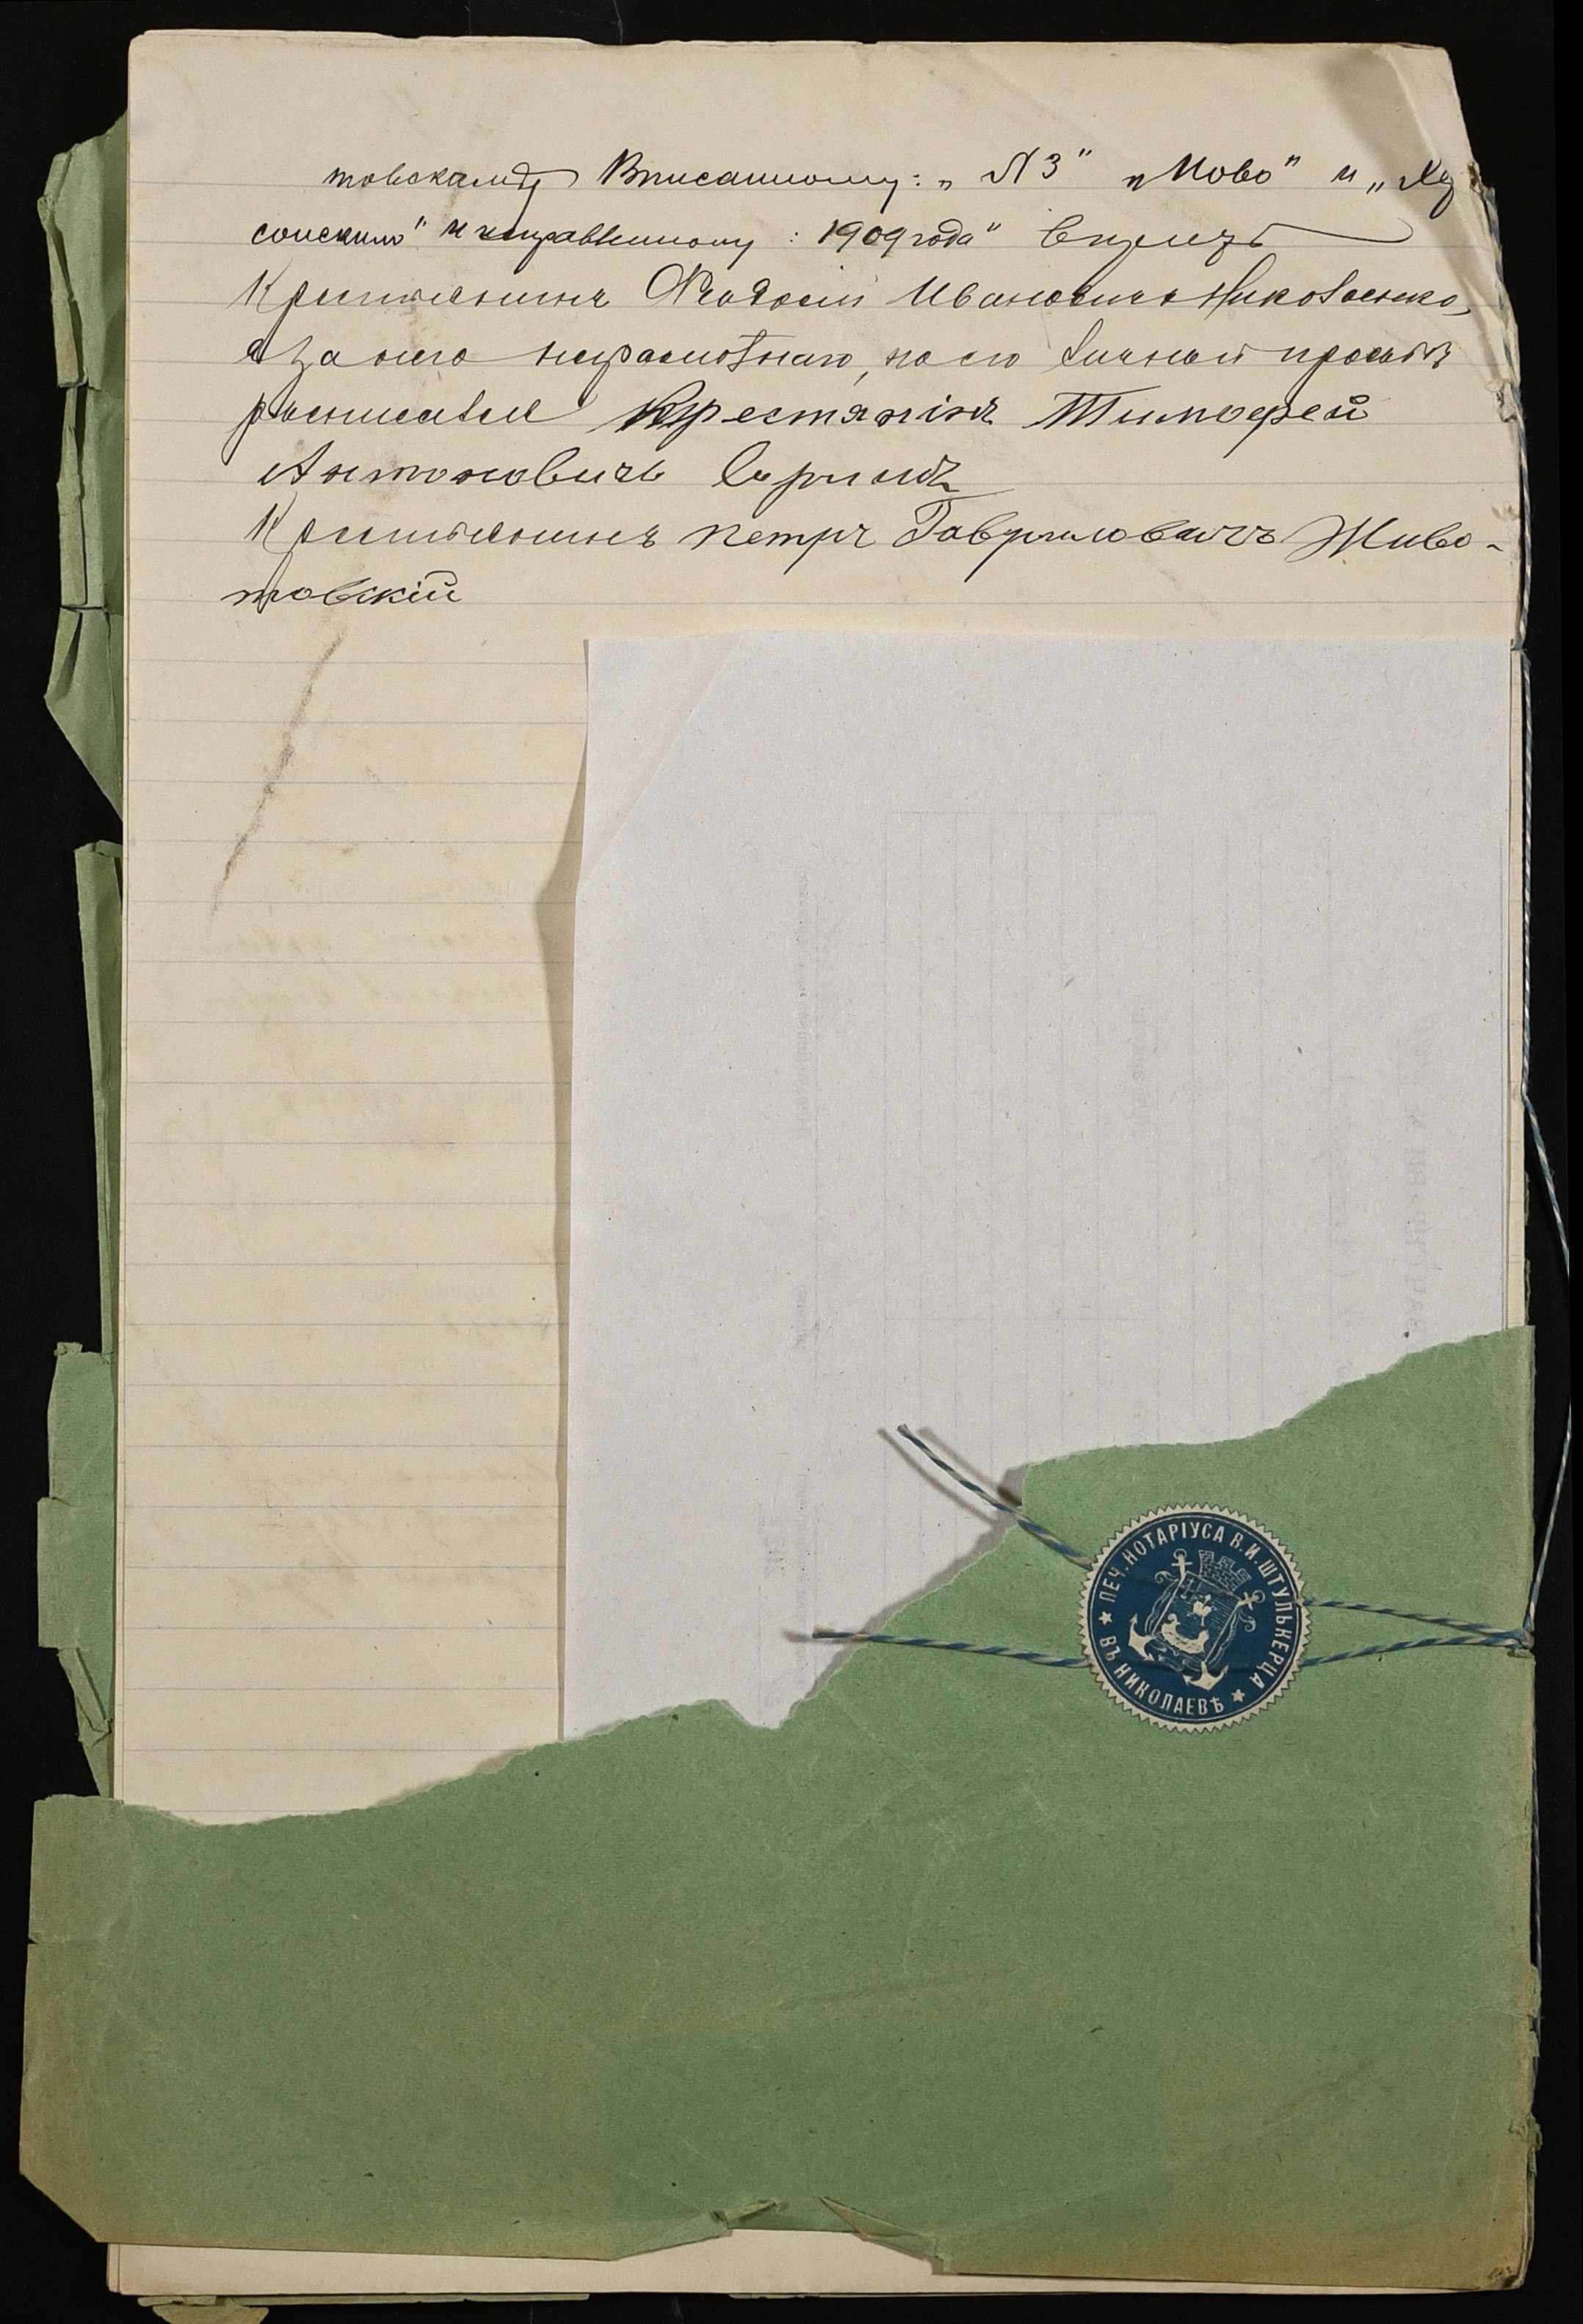 товскому Вписанному: „№ 3“ „Ново“ и „Хер
сонским“ и исправленному: 1909 года“ верить
Крестьянинъ Феодосій Ивановичъ Николаенко,
а за него неграмотнаго, по его личной просьбѣ
росписался Крестянінъ Тимофей
Антоновичъ
Крестьянинъ Петръ Гавриловичъ Живо-
товскій
ПЕЧ. НОТАРІУСА В. И. ШТУЛЬКЕРЦА
ВЪ НИКОЛАЕВѢ